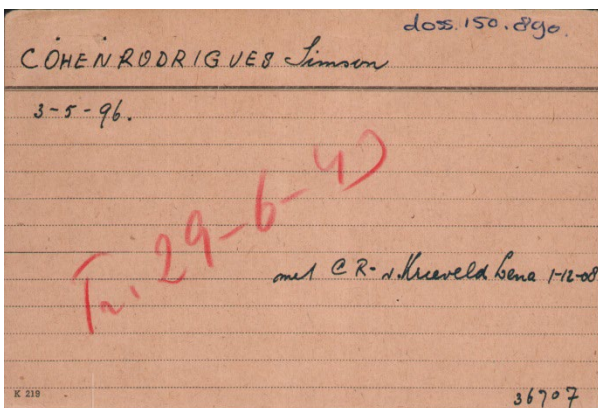 doss. 150.890.
COHENRODRIGUES Simson
3-5-96.
Tr. 29-6-43
met C R - v. Kreeveld Lena 1-12-08
K 219
36707